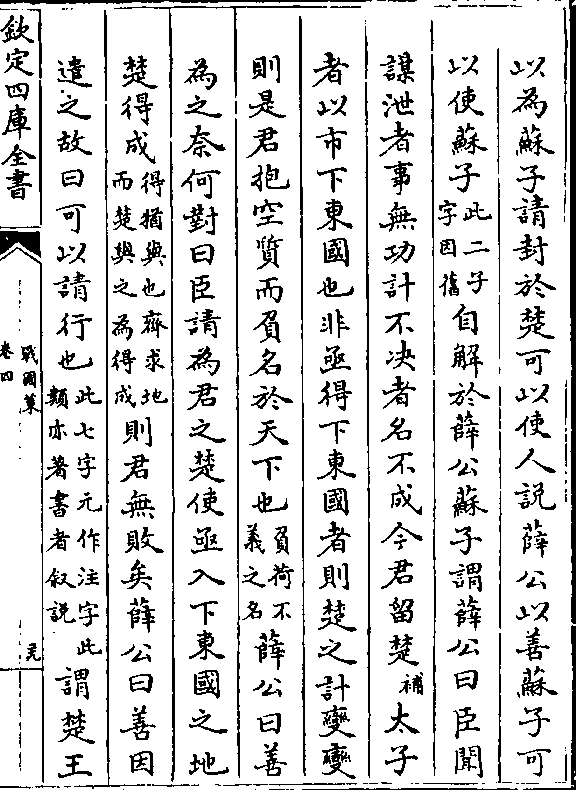 以為蘇子請封於楚可以使人說薛公以善蘇子可
以使蘇子此二子字因舊自解於薛公蘇子謂薛公曰臣聞
謀泄者事無功計不決者名不成今君留楚補太子
者以市下東國也非亟得下東國者則楚之計變變
則是君抱空質而負名於天下也負荷不義之名薛公曰善
為之奈何對曰臣請為君之楚使亟入下東國之地
楚得成得猶與也齊求地而楚與之為得成則君無敗矣薛公曰善因
遣之故曰可以請行也此七字元作注字此類亦著書者叙説謂楚王
欽定四庫全書
戰國策
卷四